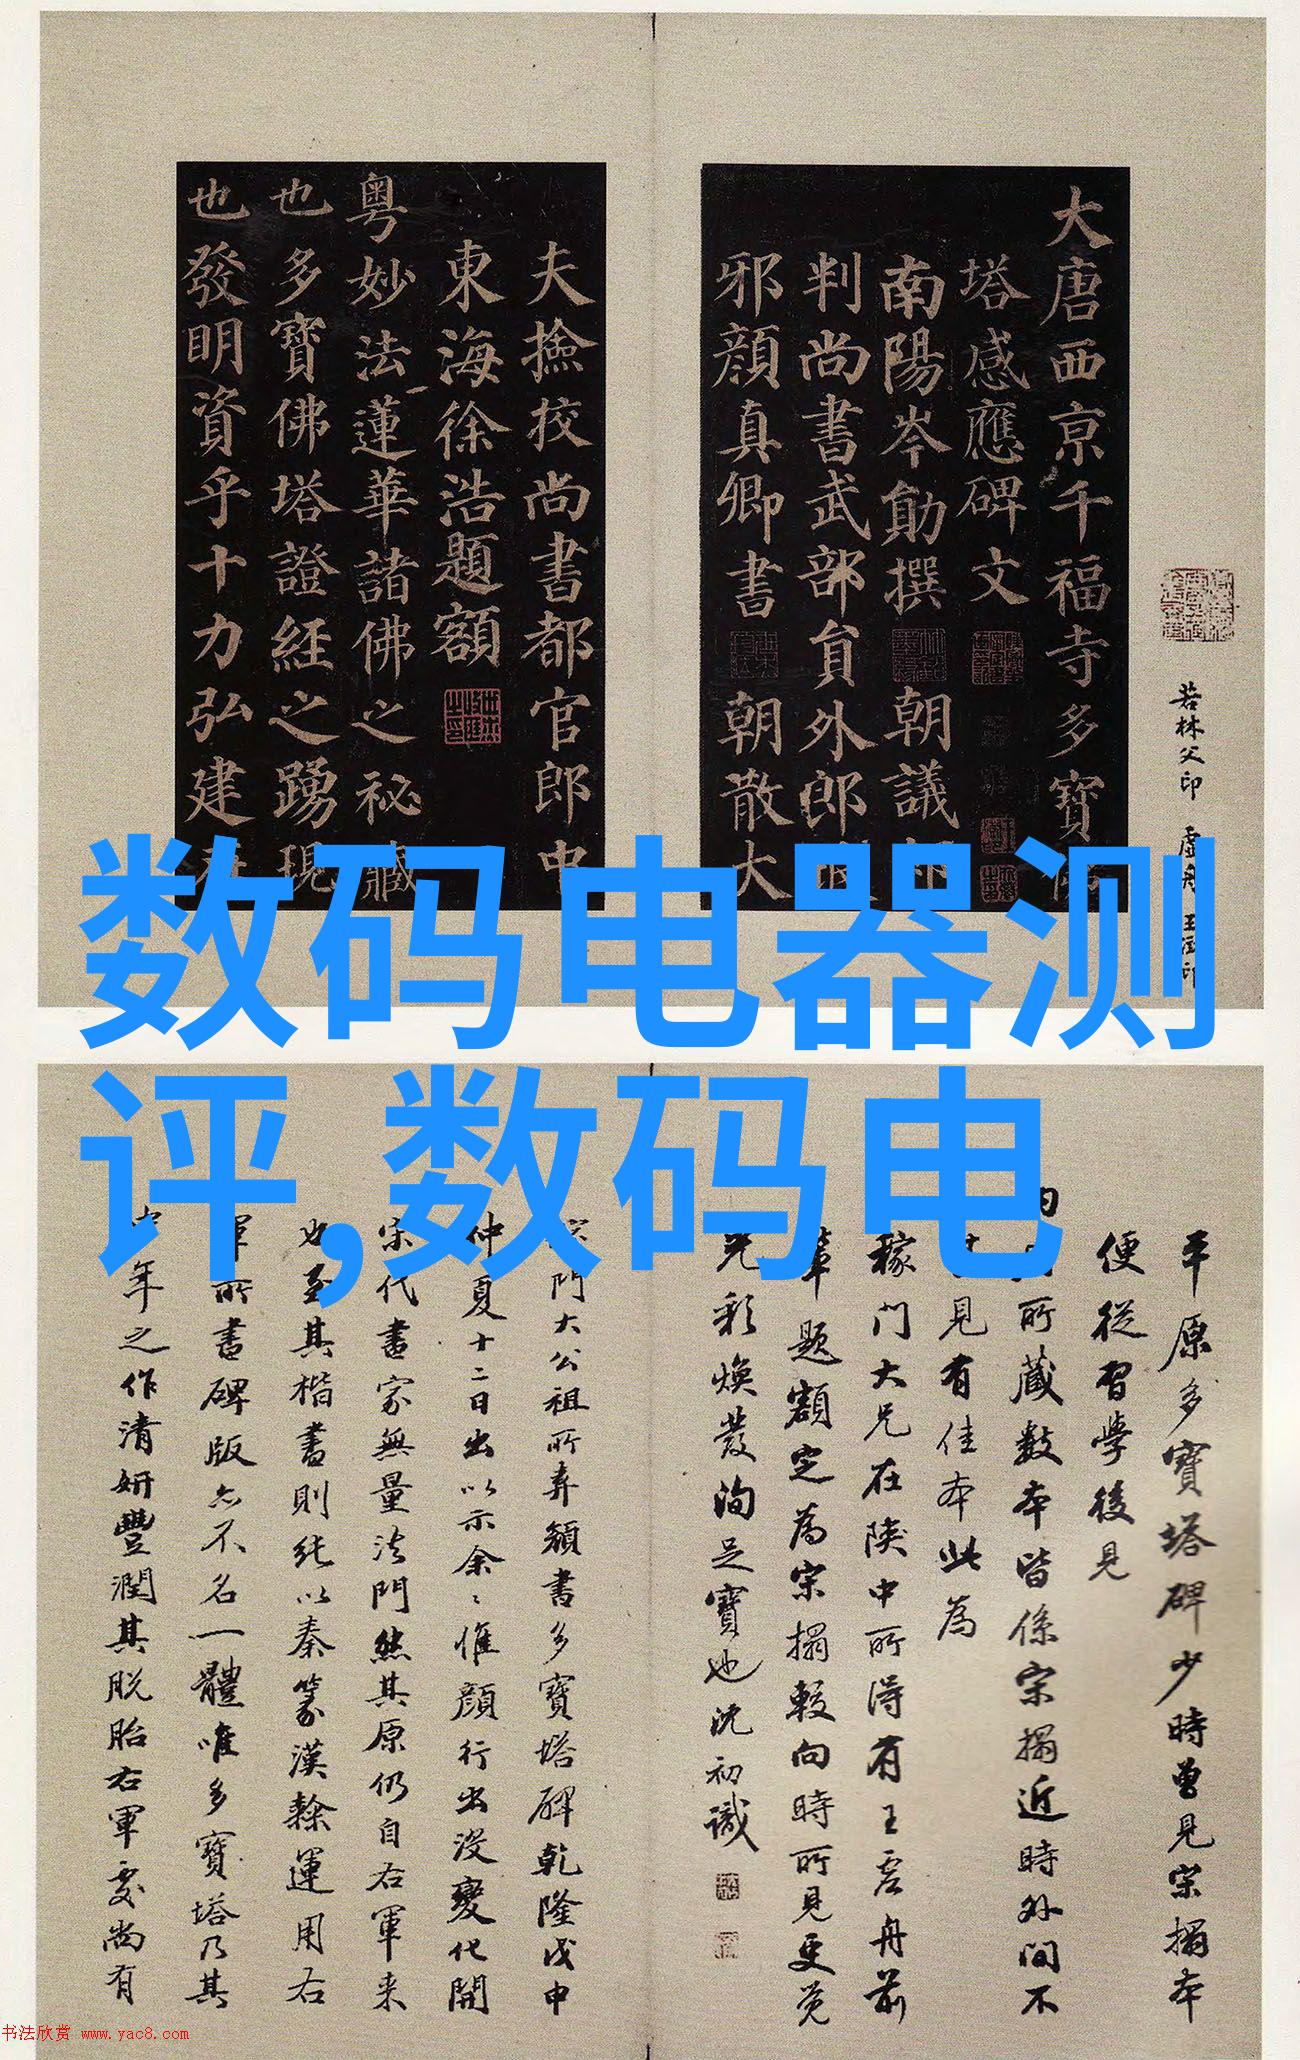 大唐西京千福寺多寶佛
塔感應碑文
南陽岑勛撰 朝議郎
判尚書武部貟外郎
邪顔真卿書 朝散大
夫撿挍尚書都官郎中
東海徐浩題額
粤妙法蓮華諸佛之祕藏
也多寶佛塔證經之踴現
也發明資乎十力弘建在
若林父印 虚舟 王澍印
数码电器测
评,数码电
平原多寶塔碑少時曽見宋搨本
便從習學後見
所藏數本皆係宋搨近時外间不
見有佳本此為
稼门大兄在陕中所得有王虚舟前
輩題額定為宋搨較向時所見更覺
光彩焕發洵足寶也沈初識
门大公祖所弆顔書多寶塔碑乾隆戊申
仲夏十二日出以示余〻惟顔行出没變化開
宋代書家無量法門然其原仍自右軍来
也至其楷書則純以秦篆漢隸運用右
軍所書碑版亦不名一體唯多寶塔乃其
年之作清妍豐潤其脱胎右軍處尚有
书法欣赏 www.yac8.com